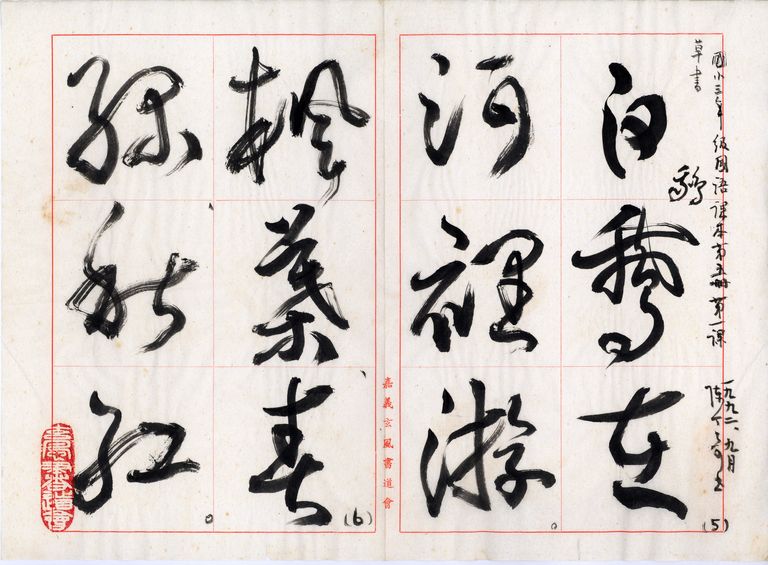 國小三年級國語課本第五冊第一課
一九九二、九月
草書
鵝
白鵝在
(5)
河裡游。
嘉義玄風書道會
楓葉春、
(6)
綠秋紅。